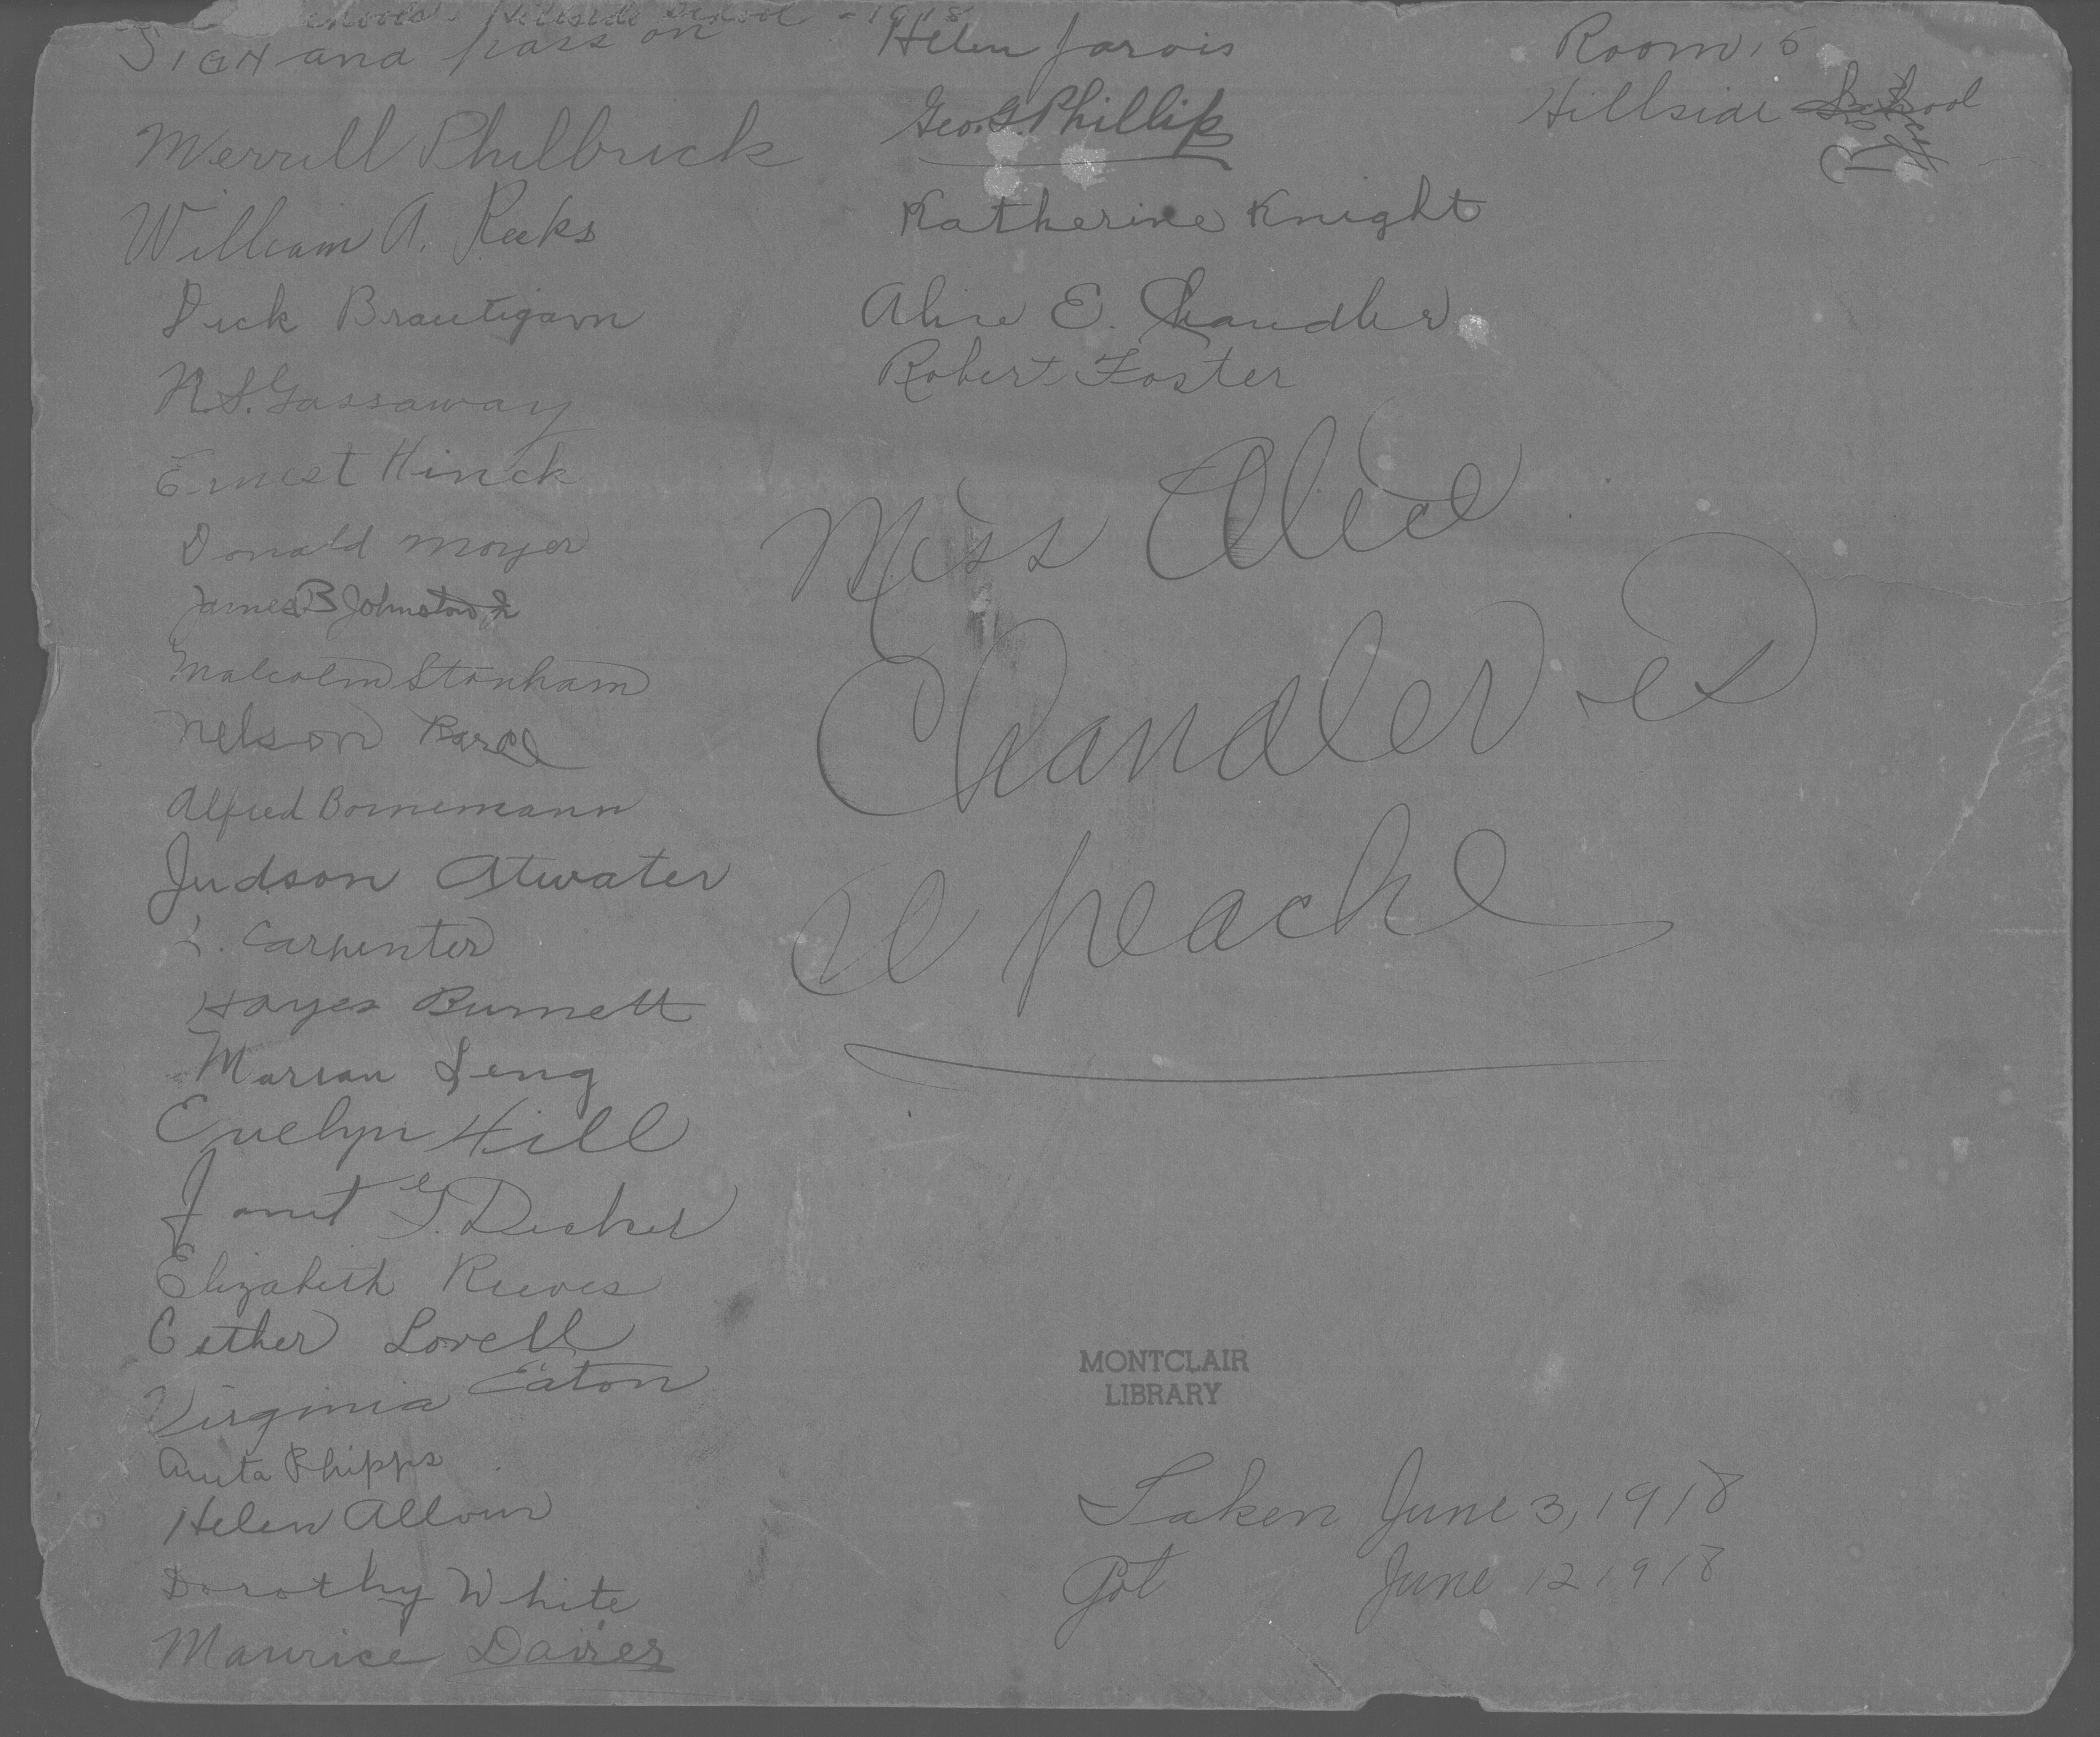 Schools - Hillside School - 1918
Sign and pass on
Merrill Philbrick
William A. Reeks
Dick Brautigam
N.S. Gassaway
Ernest Hinck
Donald Moyer
James B Johnston Jr
Malcolm Stonham
Nelson
Alfred Bornemann
Judson Atwater
L. Carpenter
Hayes Burnett
Marian Seng
Evelyn Hill
Janet G. Decker
Elizabeth Reeves
Esther Lovell
Virginia Eaton
Anita Phipps
Helen
Dorothy White
Maurice Davies
Helen Jarvis
Geo. G. Phillips
Katherine Knight
Alice E. Chandler
Robert Foster
Room 15
Hillside School
Miss Alice
Chandler is
a peach
MONTCLAIR
LIBRARY
Taken June 3, 1918
Got June 12 1918